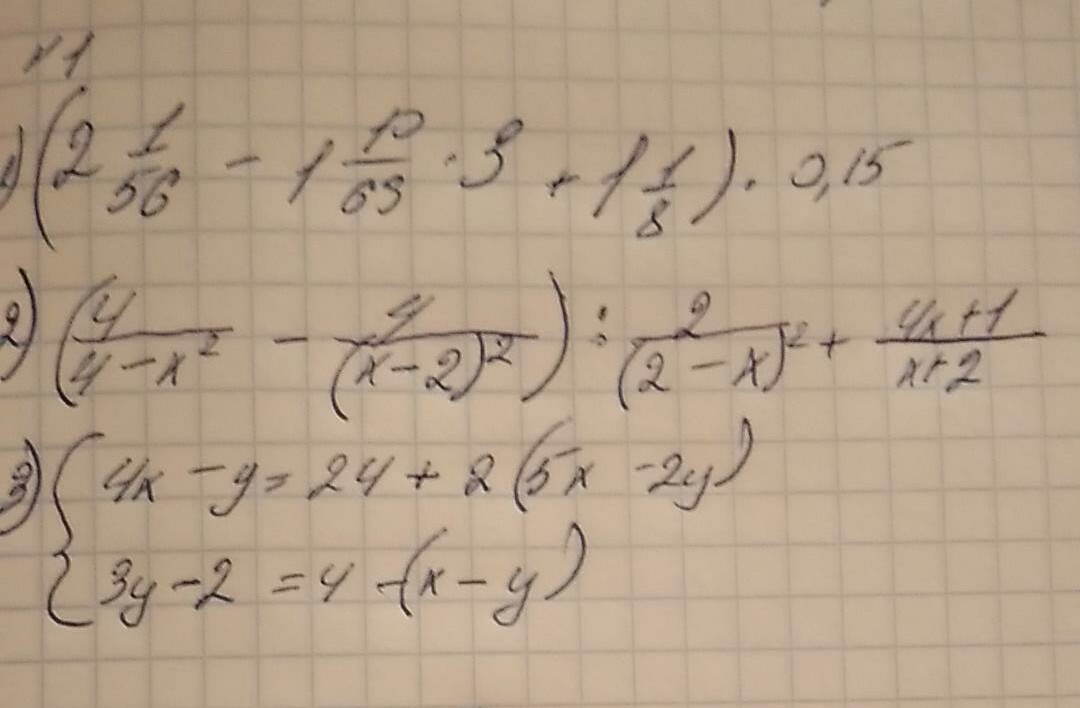 №1
1) (2 1/56 - 1 10/63 · 3 + 1 1/8) · 0,15
2) (4/(4-x²) - 4/(x-2)²) : 2/(2-x)² + (4x+1)/(x+2)
3) { 4x - y = 24 + 2(5x - 2y)
3y - 2 = 4 - (x - y)